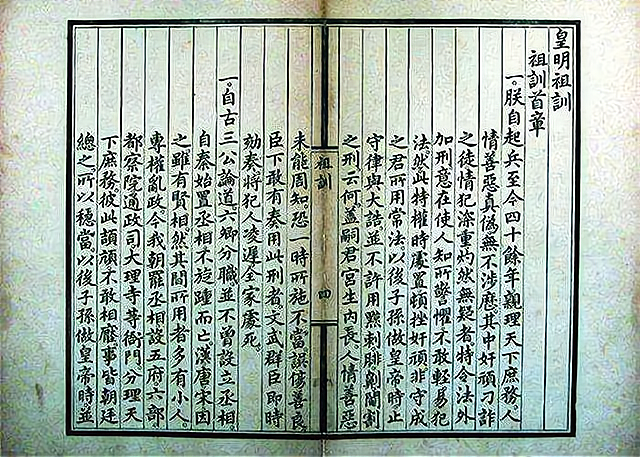 皇明祖訓
祖訓首章
一。朕自起兵至今四十餘年。親理天下庶務。人
情善惡真偽。無不涉歷。其中奸頑刁詐
之徒。情犯深重。灼然無疑者。特令法外
加刑。意在使人知所警懼。不敢輕易犯
法。然此特權時處置。頓挫奸頑。非守成
之君所用常法。以後子孫做皇帝時。止
守律與大誥。並不許用黥刺腓劓閹割
之刑。云何。蓋嗣君宮生內長。人情善惡
祖訓
四
未能周知。恐一時所施不當。誤傷善良。
臣下敢有奏用此刑者。文武群臣即時
劾奏。將犯人凌遲。全家處死。
一。自古三公論道。六卿分職。並不曾設立丞相。
自秦始置丞相。不旋踵而亡。漢唐宋因
之。雖有賢相。然其間所用者多有小人。
專權亂政。今我朝罷丞相。設五府。六部。
都察院。通政司。大理寺。等衙門。分理天
下庶務。彼此頡頏。不敢相壓。事皆朝廷
總之。所以穩當。以後子孫做皇帝時。並